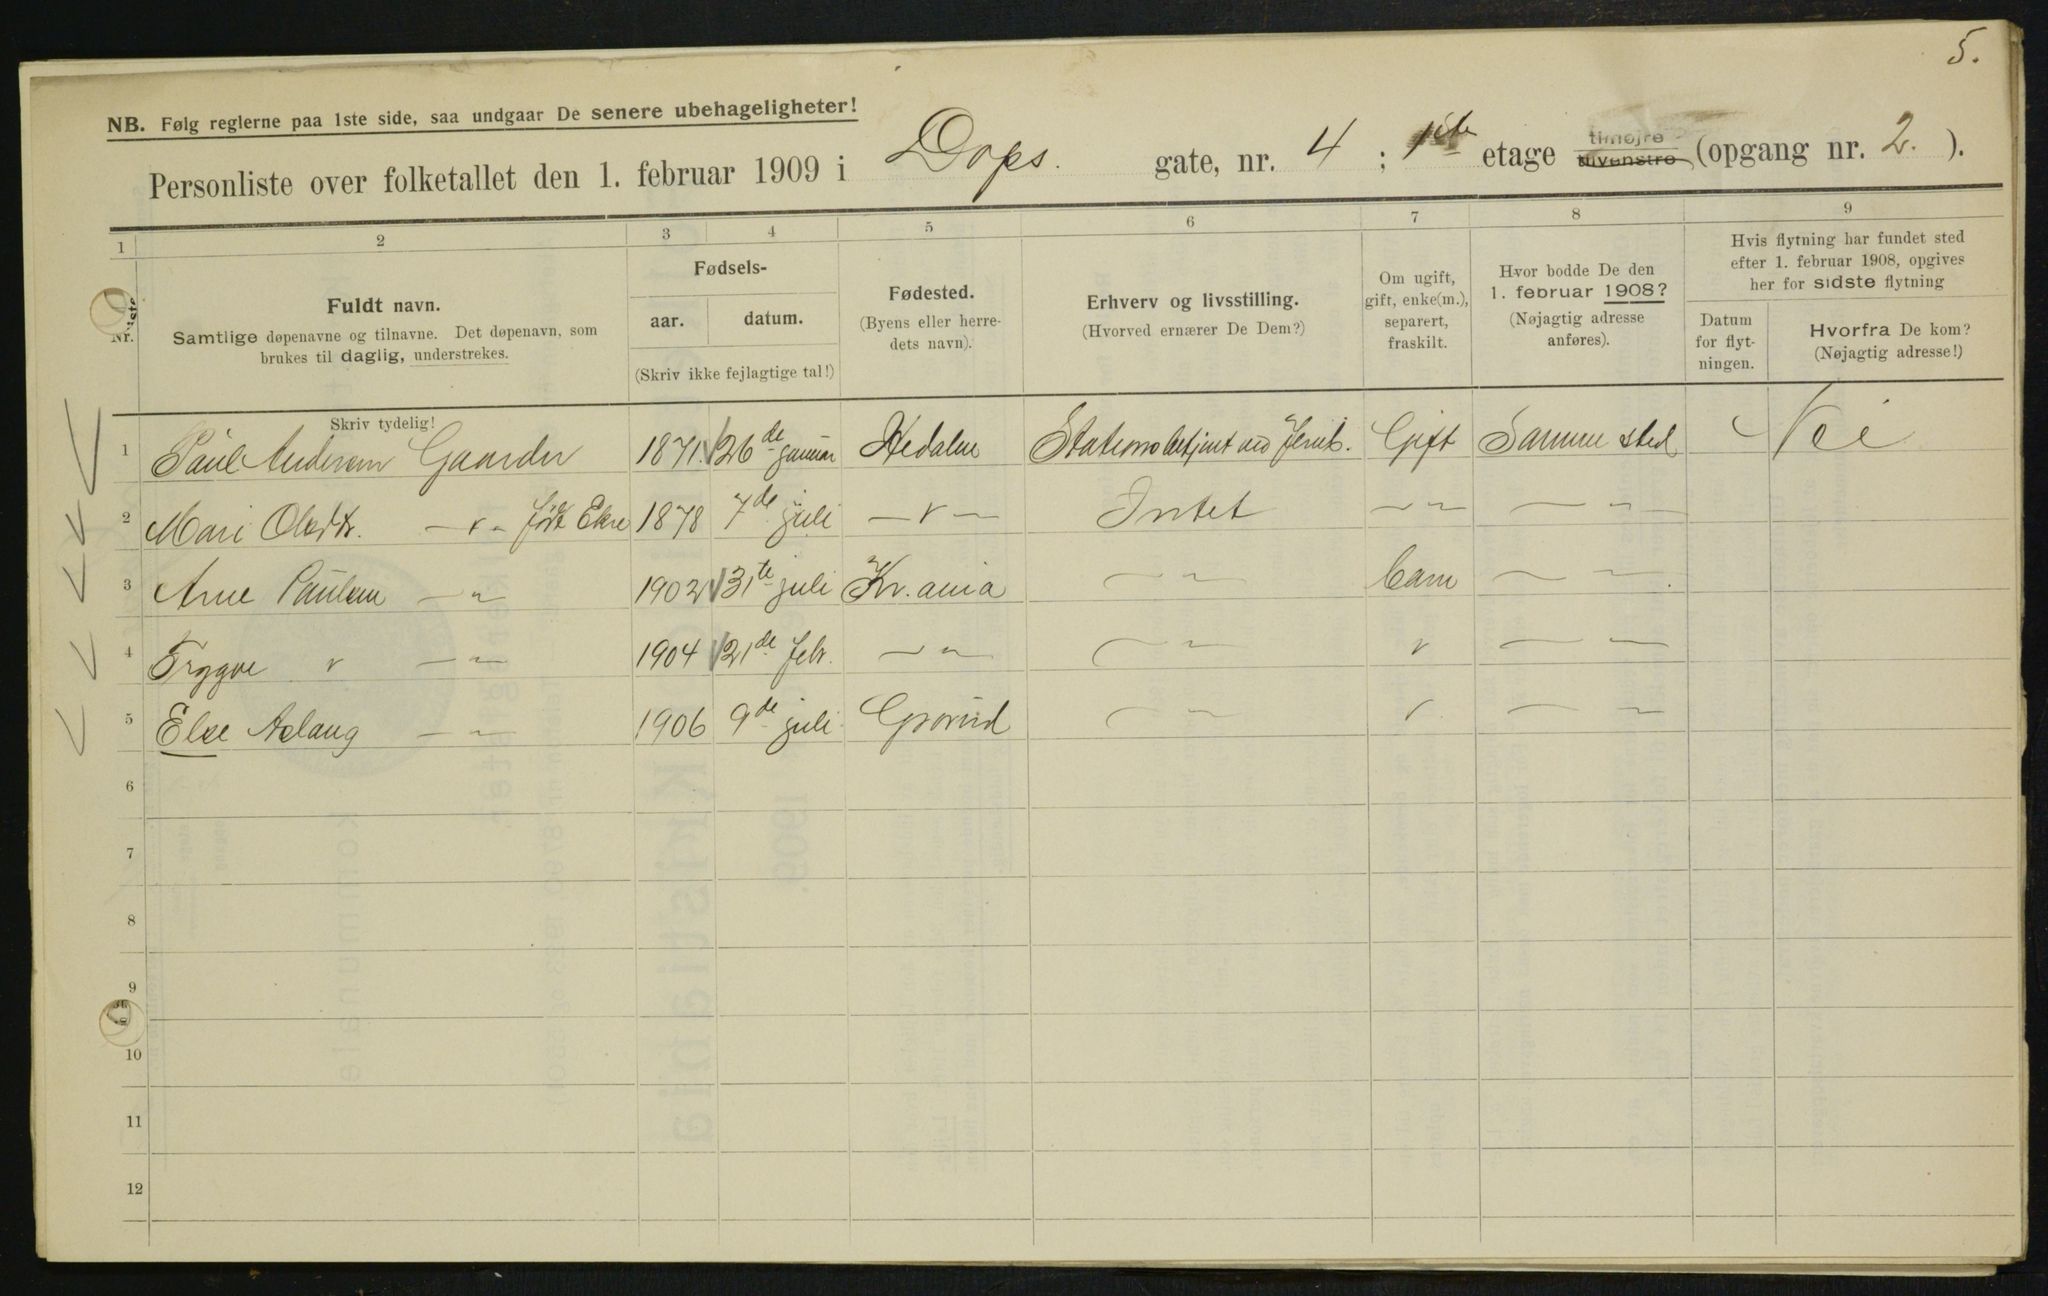 5.
NB. Følg reglerne paa 1ste side, saa undgaar De senere ubehageligheter!
Personliste over folketallet den 1. februar 1909 i Dops. gate, nr. 4 ; 1ste etage tilhøjre tilvenstre (opgang nr. 2. ).
1 2 3 4 5 6 7 8 9
Nr. Fuldt navn. Samtlige døpenavne og tilnavne. Det døpenavn, som brukes til daglig, understrekes.
Fødsels- aar. datum. (Skriv ikke fejlagtige tal!)
Fødested. (Byens eller herredets navn).
Erhverv og livsstilling. (Hvorved ernærer De Dem?)
Om ugift, gift, enke(m.), separert, fraskilt.
Hvor bodde De den 1. februar 1908? (Nøjagtig adresse anføres).
Hvis flytning har fundet sted efter 1. februar 1908, opgives her for sidste flytning
Datum for flytningen. Hvorfra De kom? (Nøjagtig adresse!)
Skriv tydelig!
1 Paul Andersen Gaarder 1871. 26de januar Hedalen Stationsbetjent ved Jernb. Gift Samme sted Nei
2 Mari Olsdtr. — „ — født Ekre 1878 7de juli — „ — Intet — „ — — „ —
3 Arne Paulsen — „ — 1902 31te juli Kr.ania — „ — Barn — „ —
4 Trygve „ — „ — 1904 21de febr. — „ — — „ — „ — „ —
5 Else Aslaug — „ — 1906 9de juli Grorud — „ — „ — „ —
6
7
8
9
10
11
12